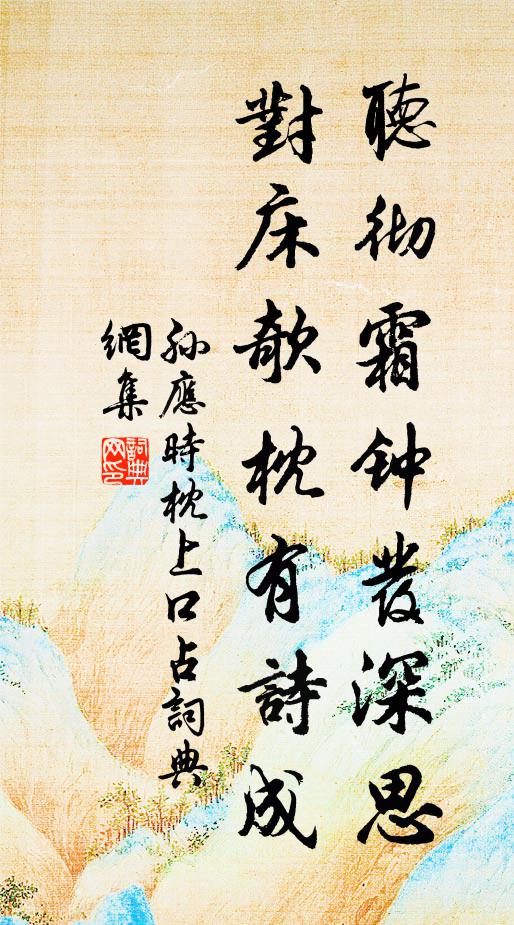 聽彻霜钟發深思
對床欹枕有詩成
孙應時枕上口占詞典
網集
詞典
网印